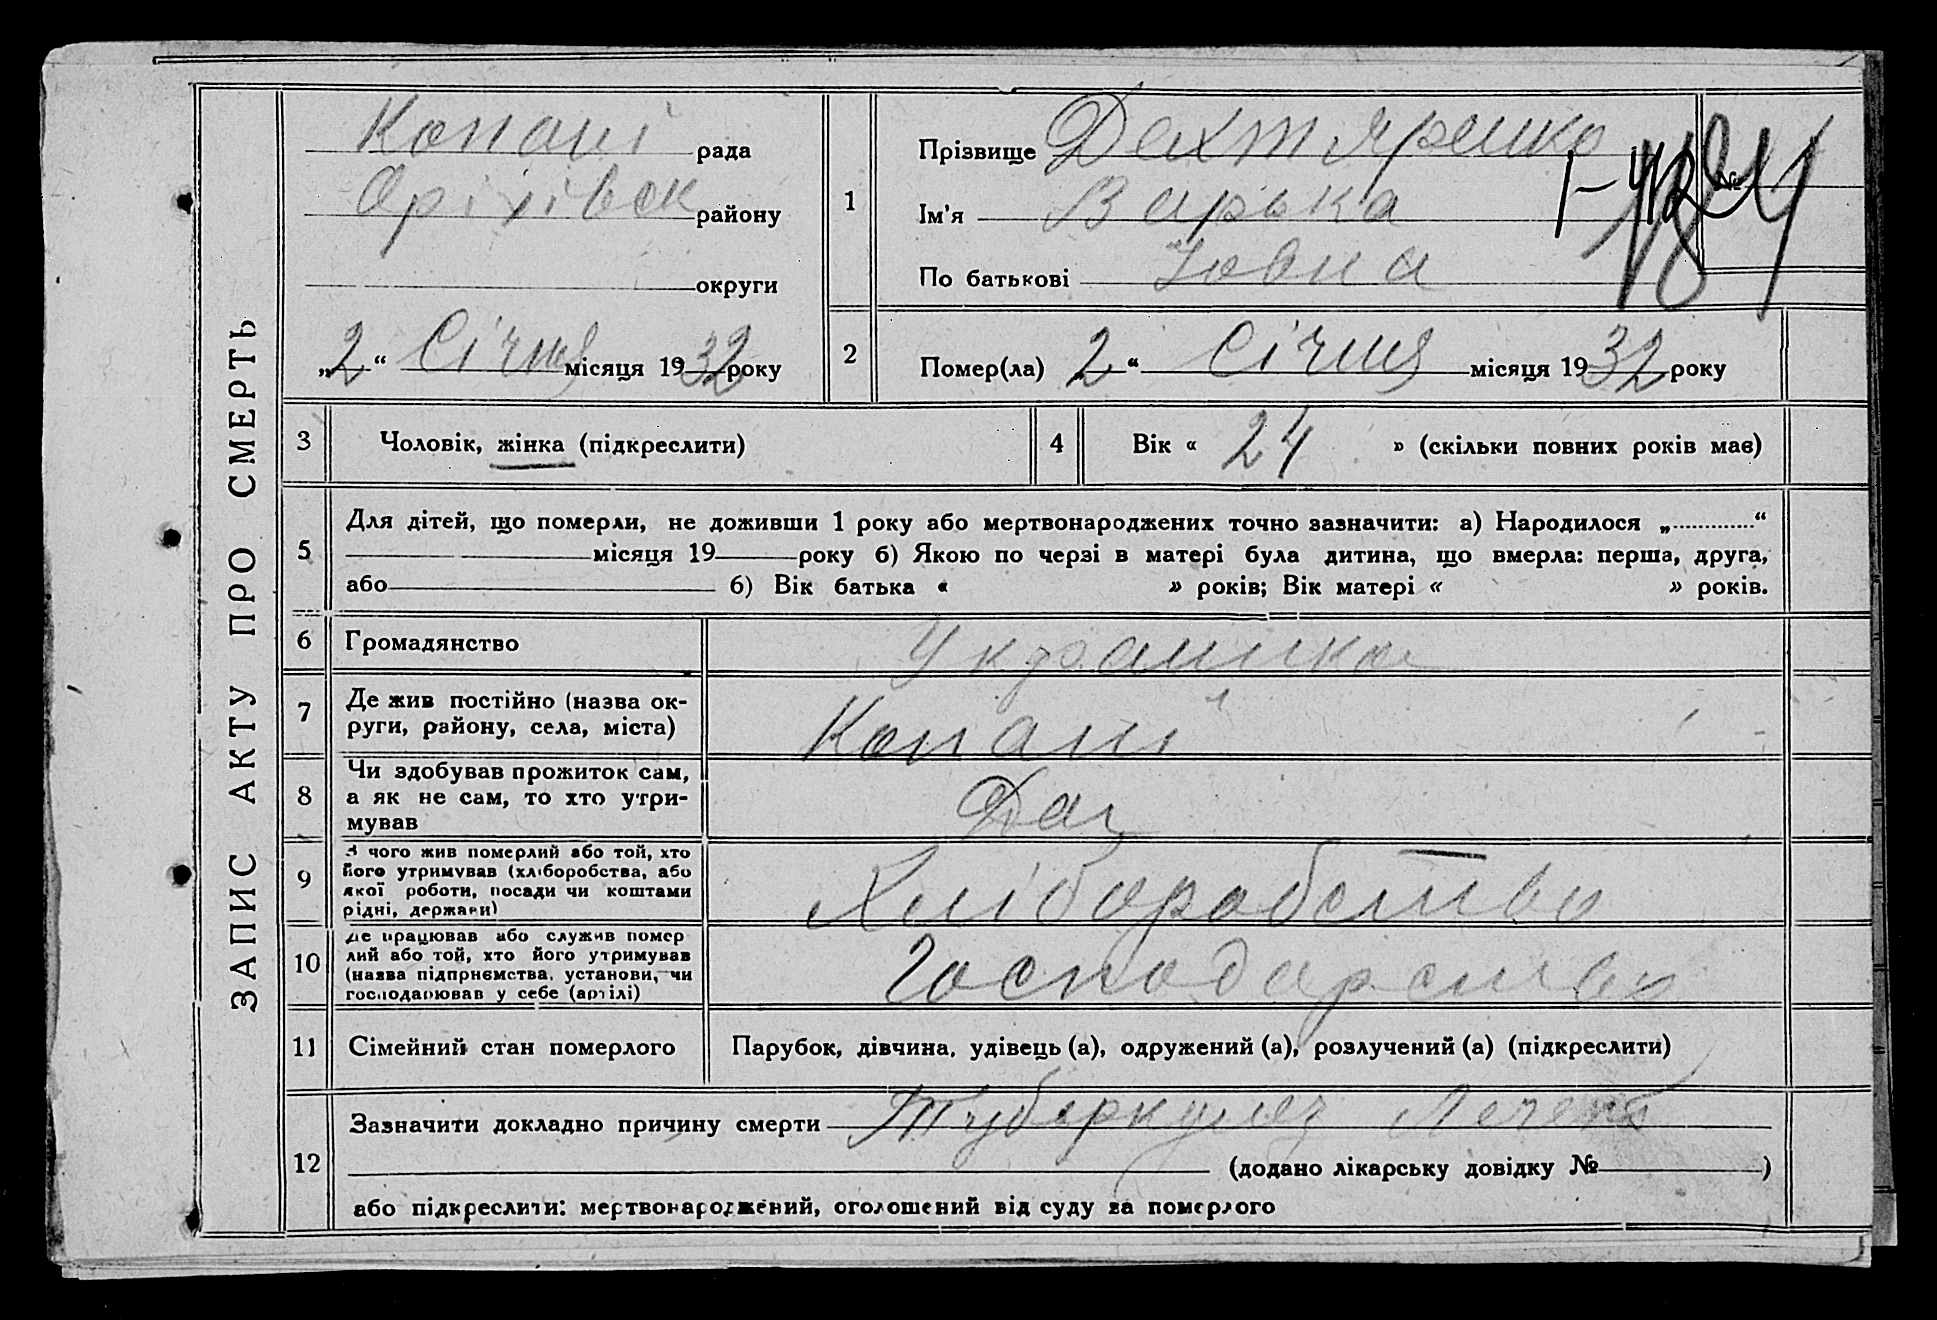 ЗАПИС АКТУ ПРО СМЕРТЬ
Копані рада
Оріхівск району
округи
„2“ Січня місяця 1932 року
1
Прізвище Дехтяренко
Ім'я Варька
По батькові Іовна
№
2
Помер(ла) 2 “ Січня місяця 1932 року
3 Чоловік, жінка (підкреслити)
4 Вік « 24 » (скільки повних років має)
5
Для дітей, що померли, не доживши 1 року або мертвонароджених точно зазначити: а) Народилося „ “
місяця 19 року б) Якою по черзі в матері була дитина, що вмерла: перша, друга,
або б) Вік батька « » років; Вік матері « » років.
6 Громадянство Українка
7 Де жив постійно (назва ок-
руги, району, села, міста)
Копані
8 Чи здобував прожиток сам,
а як не сам, то хто утри-
мував
9 З чого жив померлий або той, хто
його утримував (хліборобства, або
якої роботи, посади чи коштами
рідні, держави)
Хліборобство
10 Де працював або служив помер
лий або той, хто його утримував
(назва підприємства, установи, чи
господарював у себе (артілі)
Господарство
11 Сімейний стан померлого
Парубок, дівчина, удівець (а), одружений (а), розлучений (а) (підкреслити)
12
Зазначити докладно причину смерти Туберкульоз
(додано лікарську довідку № )
або підкреслити: мертвонароджений, оголошений від суду за померлого